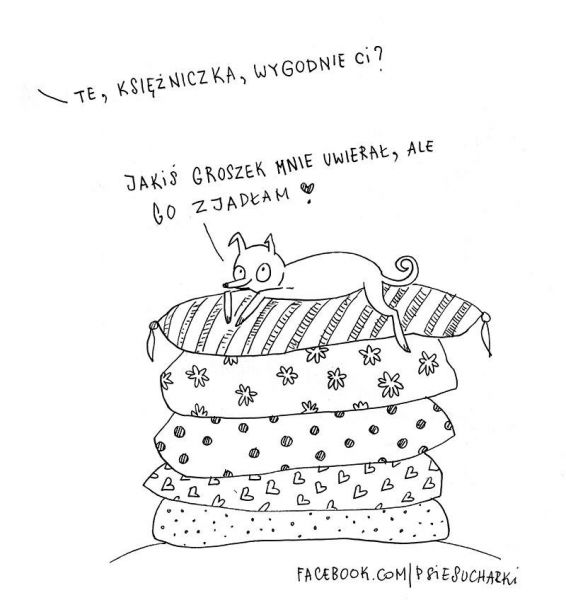 TE, KSIĘŻNICZKA, WYGODNIE Ci?
JAKiŚ GROSZEK MNIE UWIERAŁ, ALE
GO ZJADŁAM
FACEBOOK.COM/PSiESUCHARKi